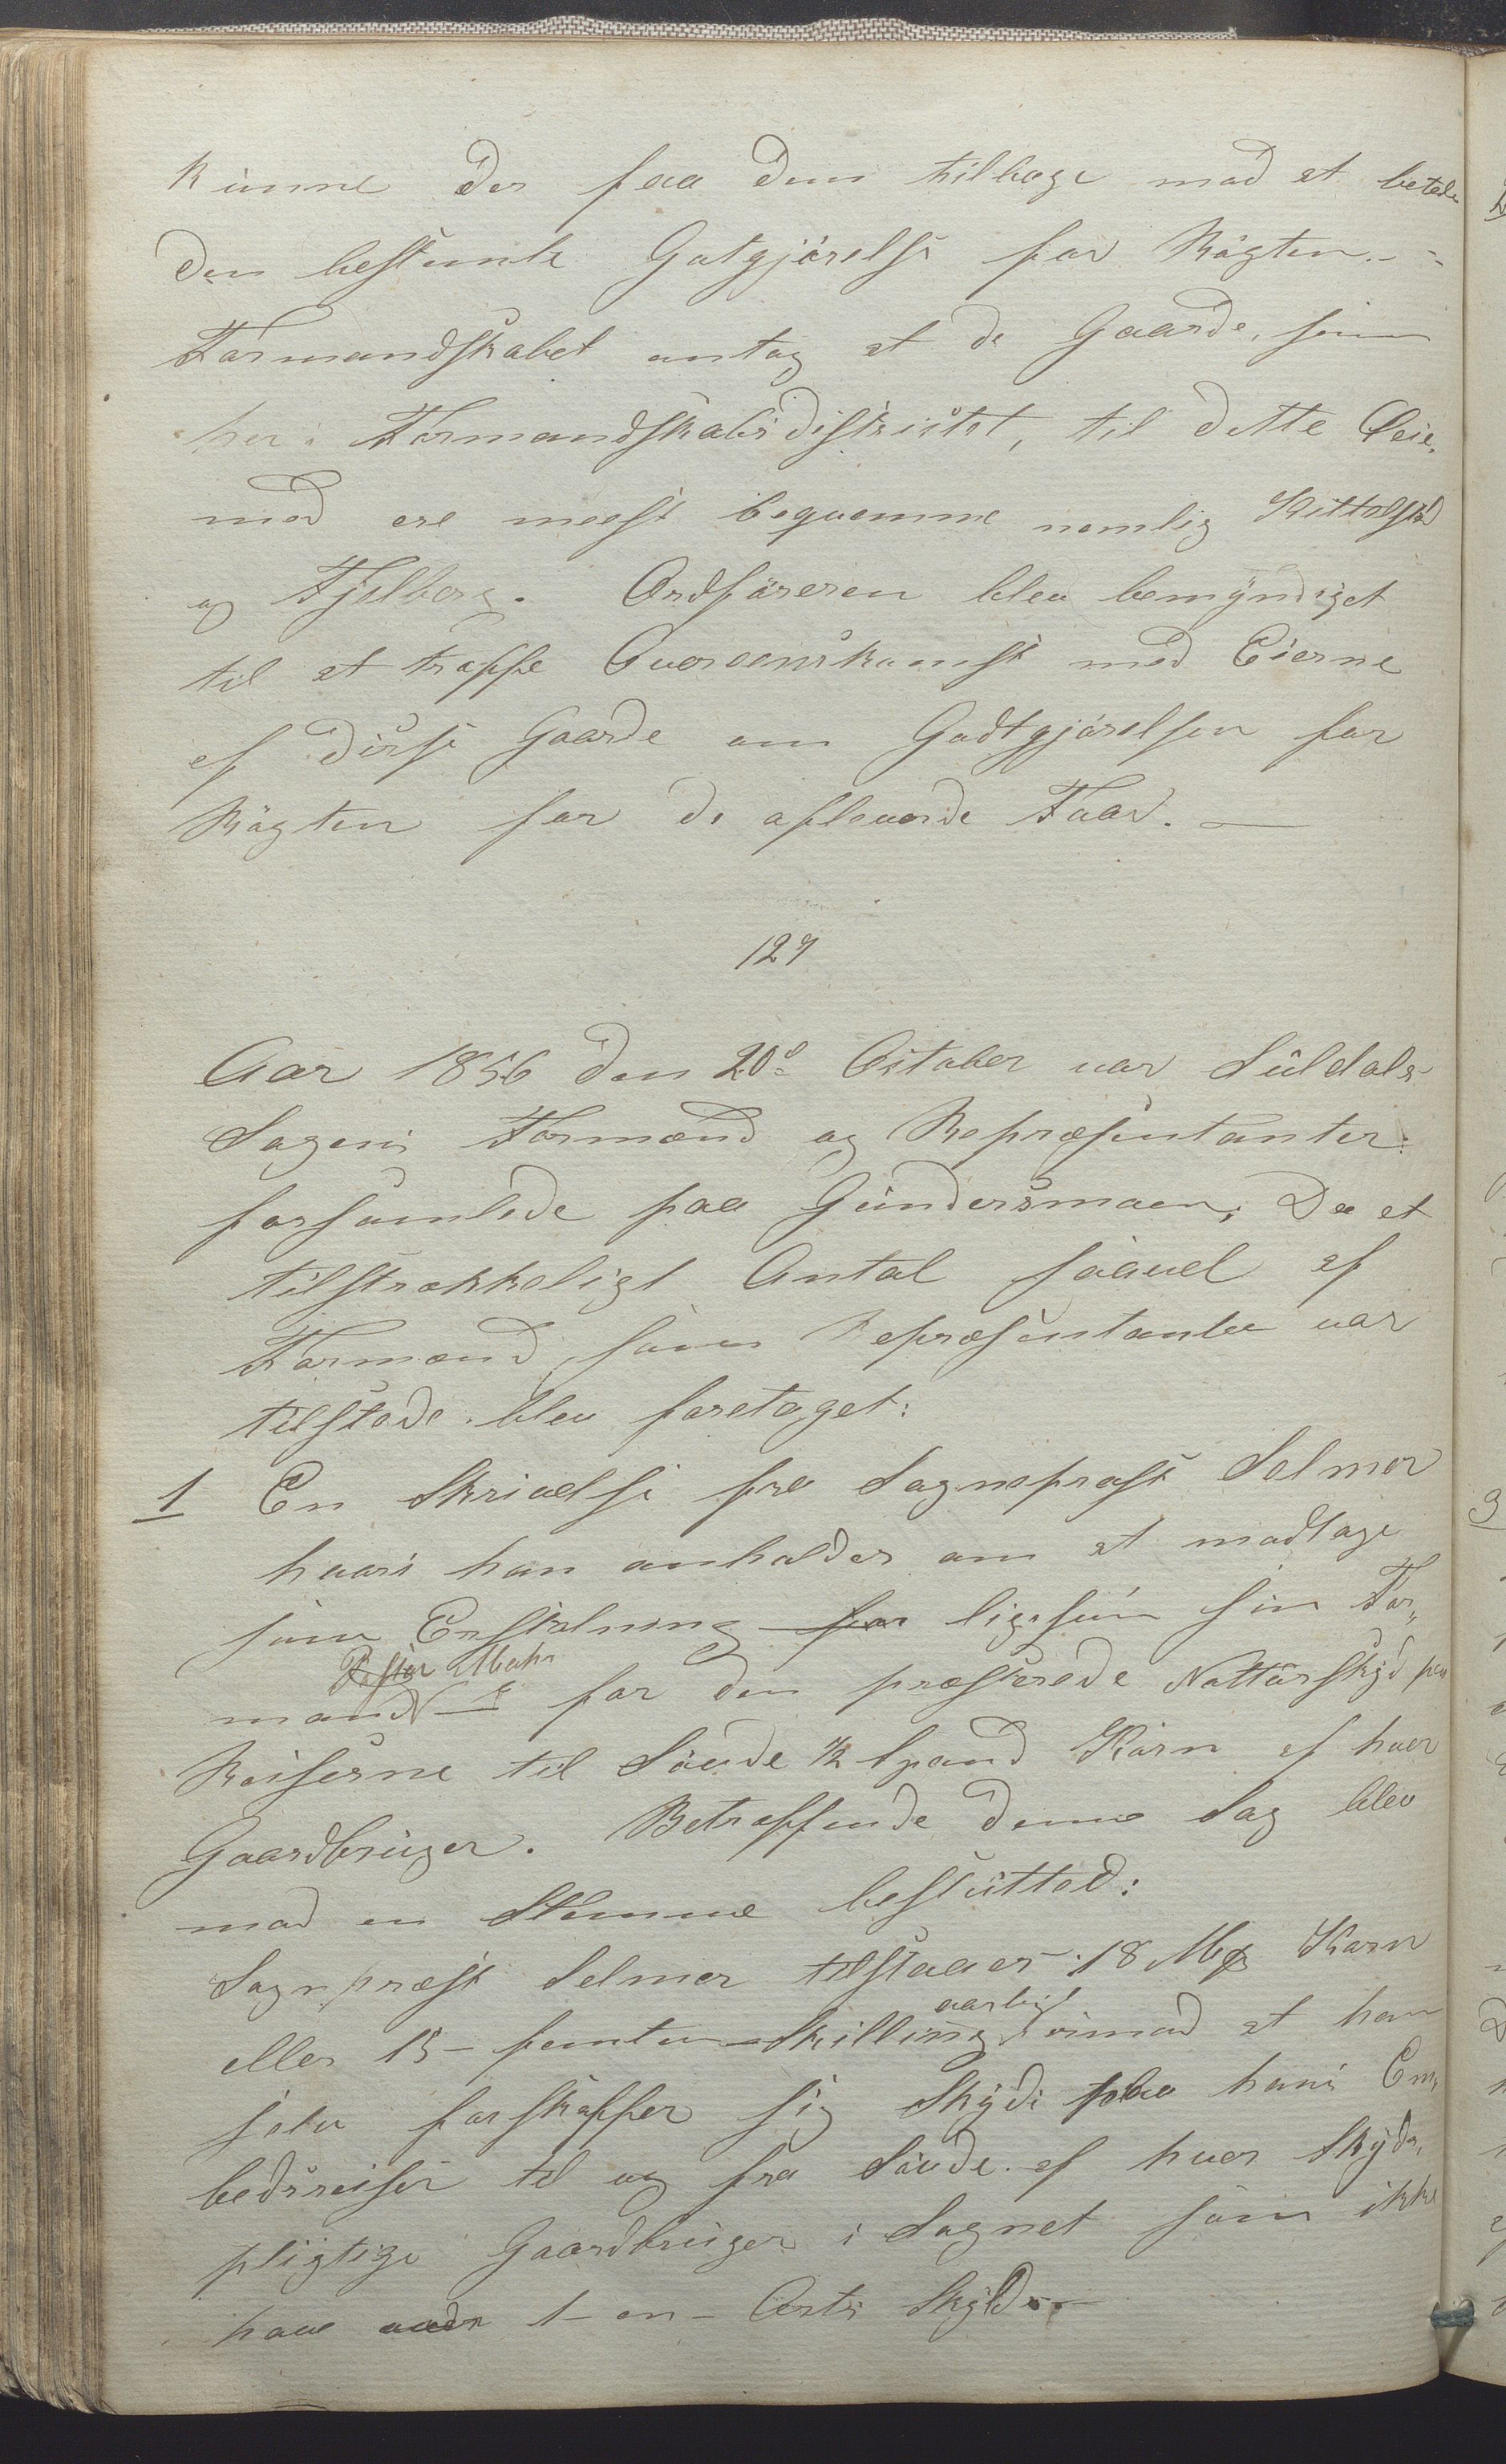 kunne der faa dem tilbage mod at betale
den bestemte Gotgjörelse for Rögten. -
Formandskabet antog at de Gaarde, som
her i Formandskabsdistriktet, til dette Øie-
med ere meest beqvemme nemlig Kittelsed
og Fjelberg. Ordföreren blev bemÿndiget
til at træffe Overeenskomst med Eierne
af disse Gaarde om Godtgjörelsen for
Rögten for de afleverde Faar. —
127
Aar 1856 den 20de October var Suldals
Sogens Formænd og Repræsentanter
forsamlede paa Gundersmoen; Da et
tilstrækkeligt Antal saavel af
Formænd som Repræsentanter var
tilstede blev foretaget:
1 En Skrivelse fra Sognepræst Selmer
hvori han anholder om at modtage
som Erstatning for ligesom sin For-
Pastor Mohr
mand for den præsterede Nattörskÿd paa
Reiserne til Söude 1/2 Spand Korn af hver
Gaardbruger. Betreffende denne Sag blev
mod en Stemme besluttet:
Sognpræst Selmer tilstaaes 18 Mk Korn
eller 15 - femten - Skilling aarligt imod at han
selv forskaffer sig Skÿds paa hans Em-
bedsreiser til og fra Söude af hver Skÿds-
pligtige Gaardbruger i Sognet som ikke
have under 1 - en - Orts Skÿld. -